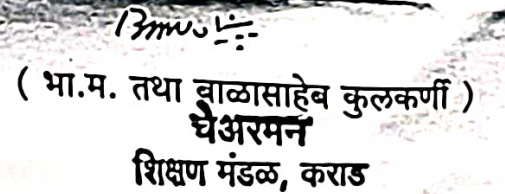 ( भा.म. तथा वाळासाहेब कुलकर्णी )
चेअरमन
शिक्षण मंडळ, कराड